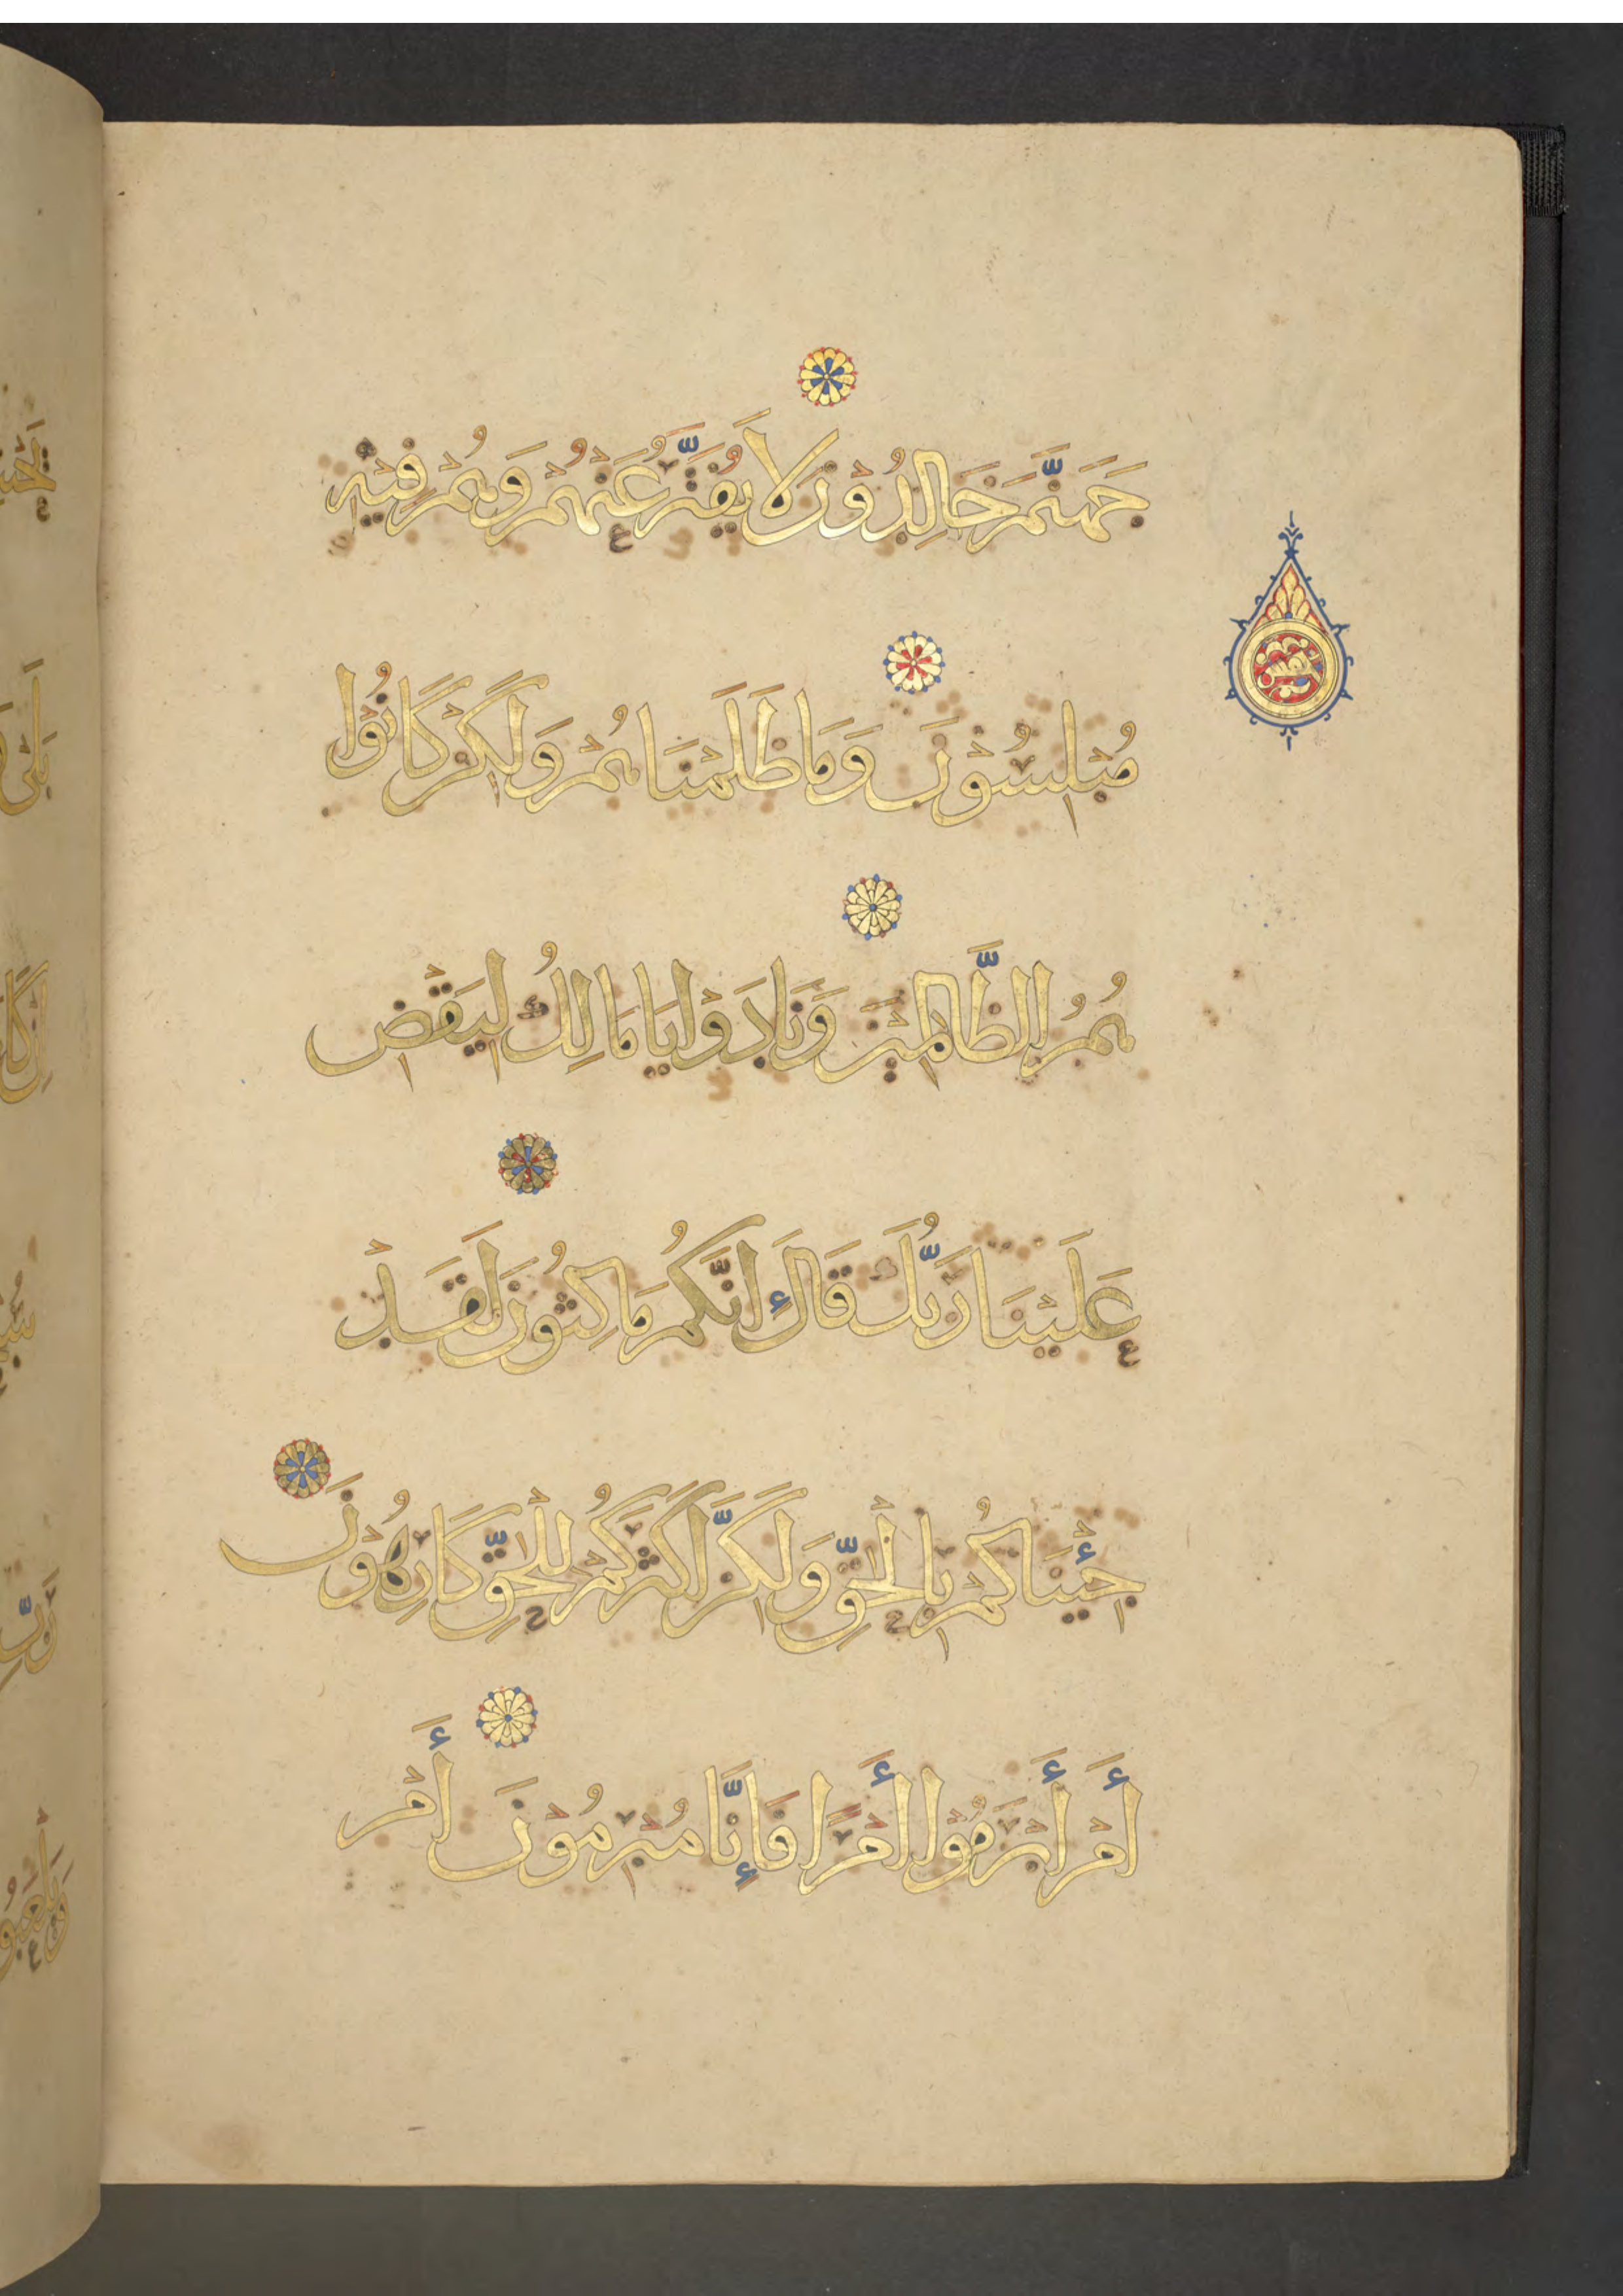 جَهَنَّمَ خَالِدُونَ لَا يُفَتَّرُ عَنْهُمْ وَهُمْ فِيهِ
مُبْلِسُوْنَ وَمَا ظَلَمْنَاهُمْ وَلَكِنْ كَانُوْا
هُمُ الظَّالِمِيْنَ وَنَادَوْا يَا مَالِكُ لِيَقْضِ
عَلَيْنَا رَبُّكَ قَالَ إِنَّكُمْ مَاكِثُونَ لَقَدْ
جِئْنَاكُمْ بِالْحَقِّ وَلَكِنَّ أَكْثَرَكُمْ لِلْحَقِّ كَارِهُوْنَ
أَمْ أَبْرَمُوْا أَمْرًا فَإِنَّا مُبْرِمُوْنَ أَمْ